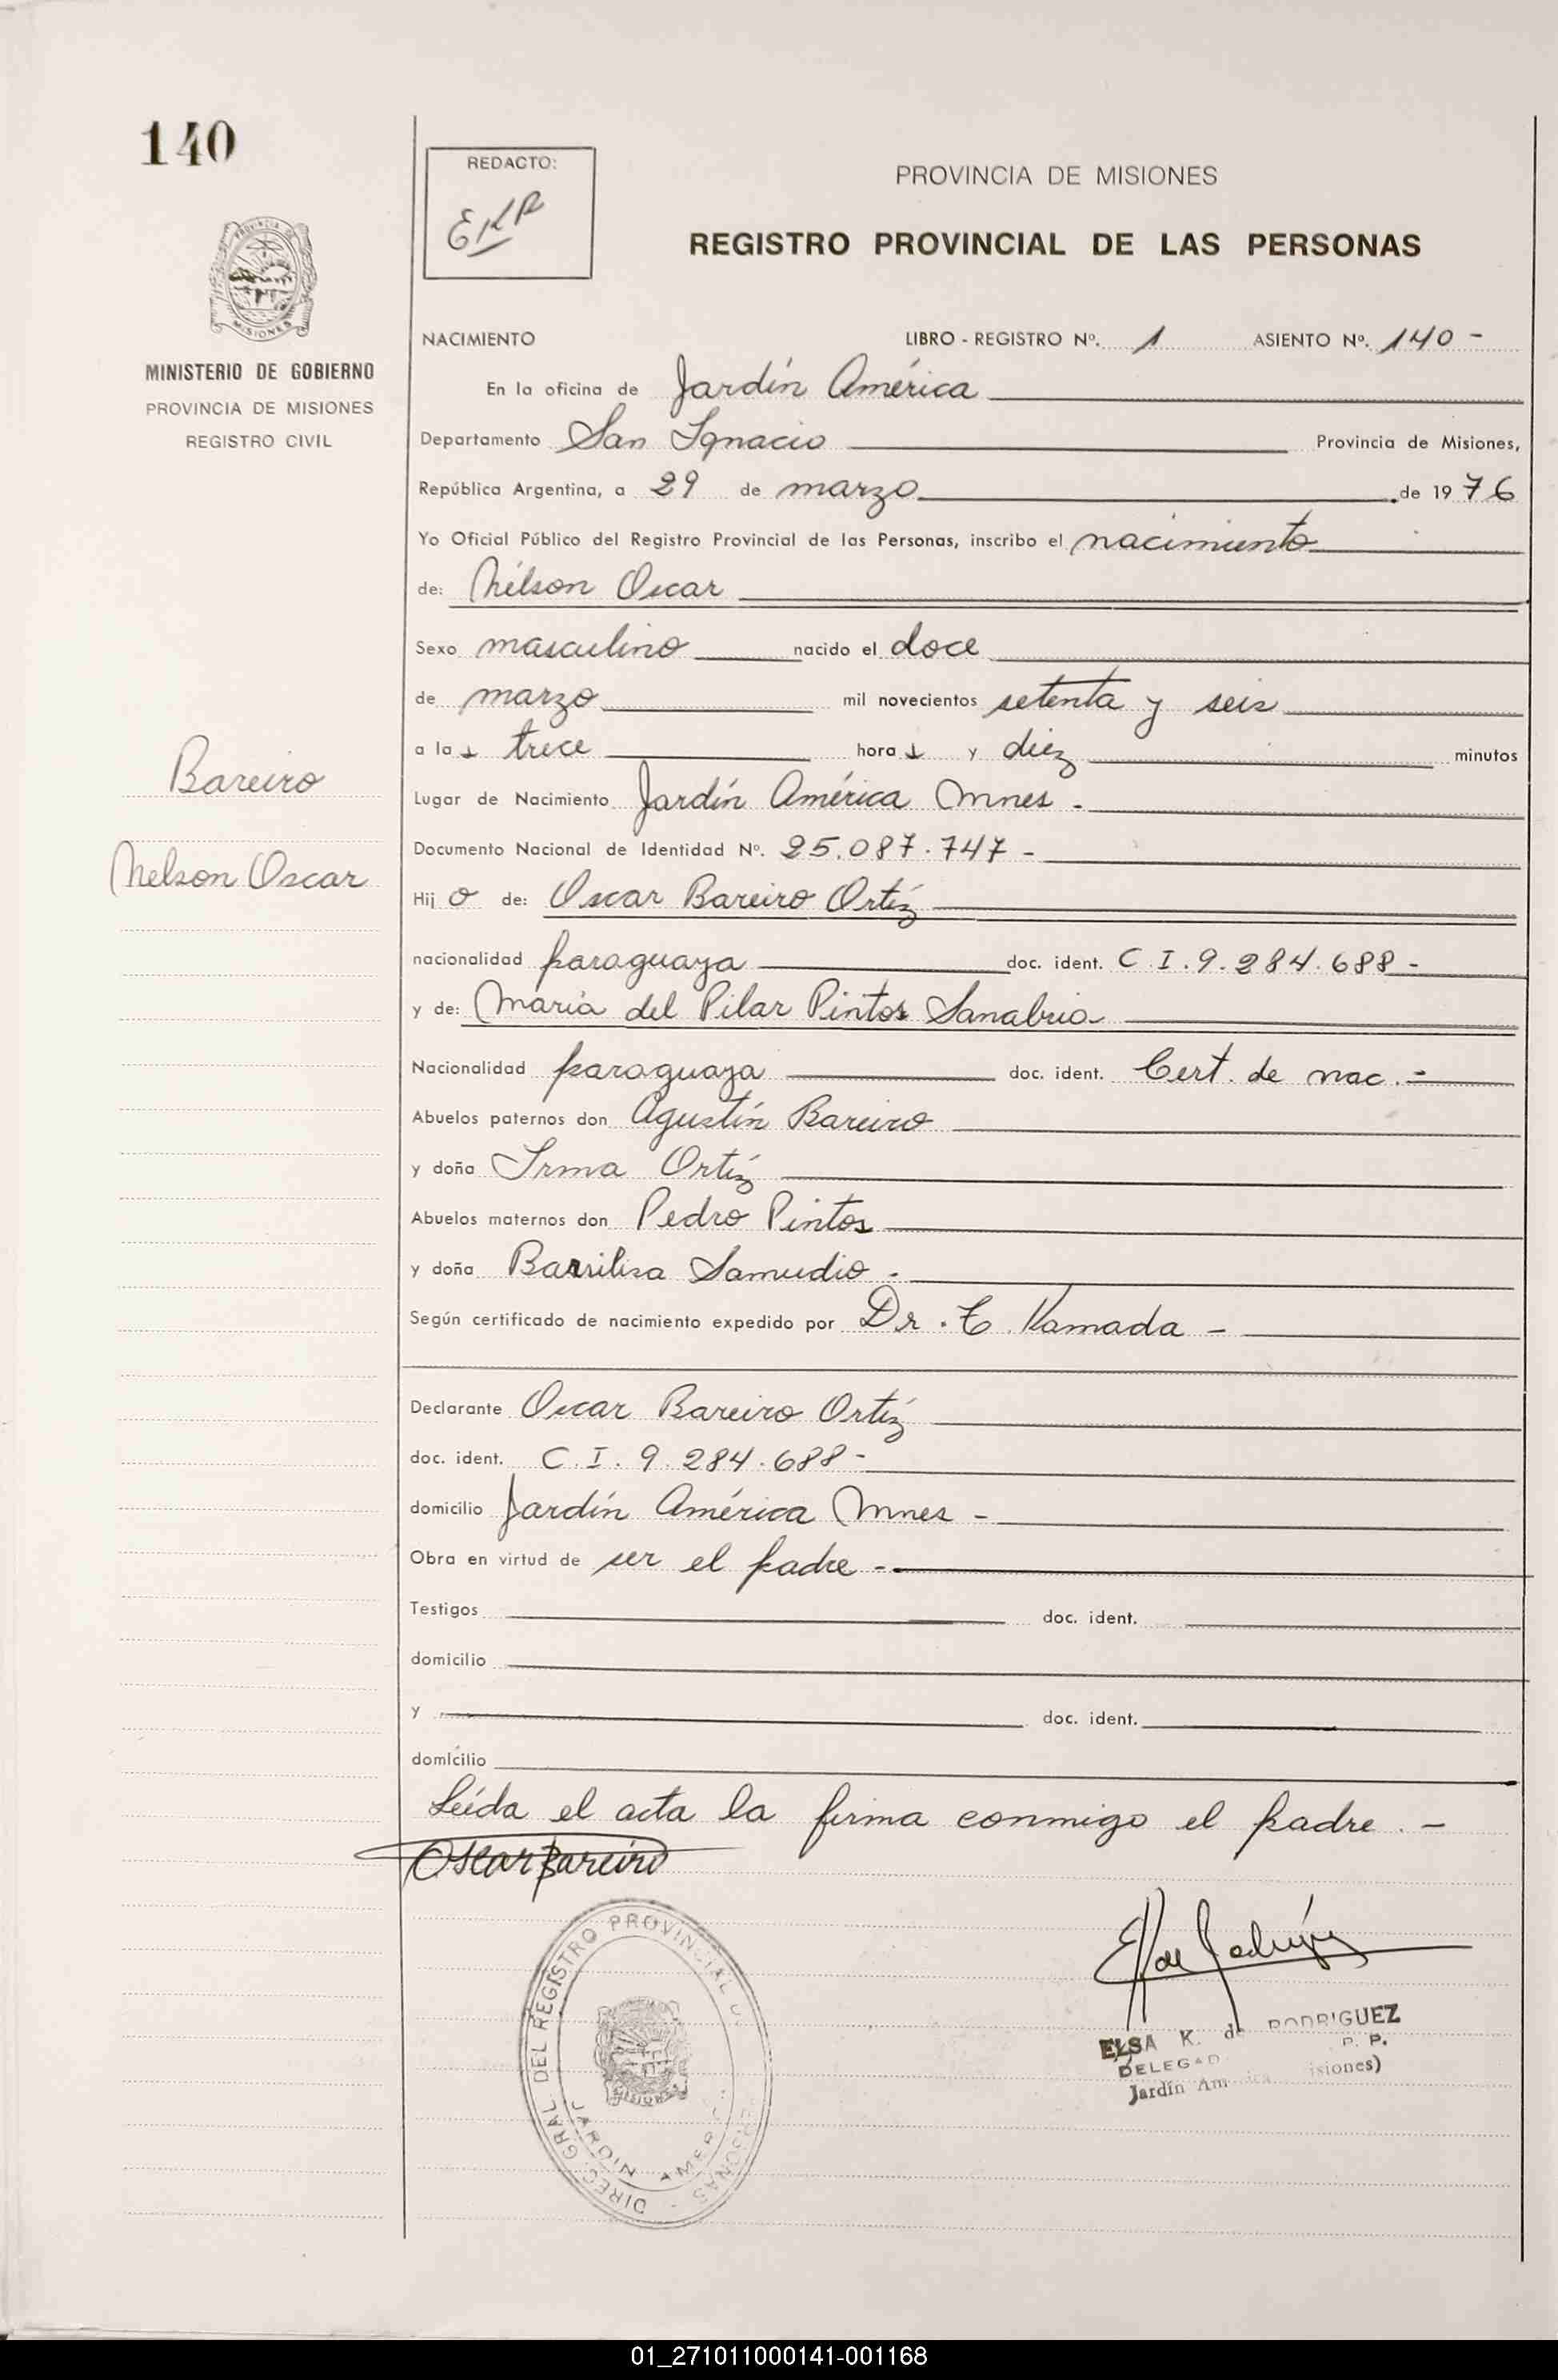 140
REDACTO:
EKR
PROVINCIA DE MISIONES
REGISTRO PROVINCIAL DE LAS PERSONAS
MISIONES
MINISTERIO DE GOBIERNO
PROVINCIA DE MISIONES
REGISTRO CIVIL
NACIMIENTO LIBRO - REGISTRO Nº. 1 ASIENTO Nº. 140 -
En la oficina de Jardín América
Departamento San Ignacio Provincia de Misiones,
República Argentina, a 29 de marzo de 1976
Yo Oficial Público del Registro Provincial de las Personas, inscribo el nacimiento
de: Nélson Oscar
Sexo masculino nacido el doce
de marzo mil novecientos setenta y seis
a las trece horas y diez minutos
Bareiro
Lugar de Nacimiento Jardín América Mnes -
Documento Nacional de Identidad Nº. 25.087.747 -
Nelson Oscar
Hijo de: Oscar Bareiro Ortíz
nacionalidad paraguaya doc. ident. C.I. 9.284.688 -
y de: María del Pilar Pintos Sanabria
Nacionalidad paraguaya doc. ident. Cert. de nac. -
Abuelos paternos don Agustín Bareiro
y doña Irma Ortíz
Abuelos maternos don Pedro Pintos
y doña Barrilisa Samudio -
Según certificado de nacimiento expedido por Dr. T. Kamada -
Declarante Oscar Bareiro Ortíz
doc. ident. C.I. 9.284.688 -
domicilio Jardín América Mnes -
Obra en virtud de ser el padre -
Testigos doc. ident.
domicilio
y doc. ident.
domicilio
Leída el acta la firma conmigo el padre. -
Oscar Bareiro
DIREC. GRAL. DEL REGISTRO PROVINCIAL PERSONAS
MISIONES
JARDIN AMERICA
ELSA K. de RODRIGUEZ
DELEGAD R. P. P.
Jardín América (Misiones)
01_271011000141-001168